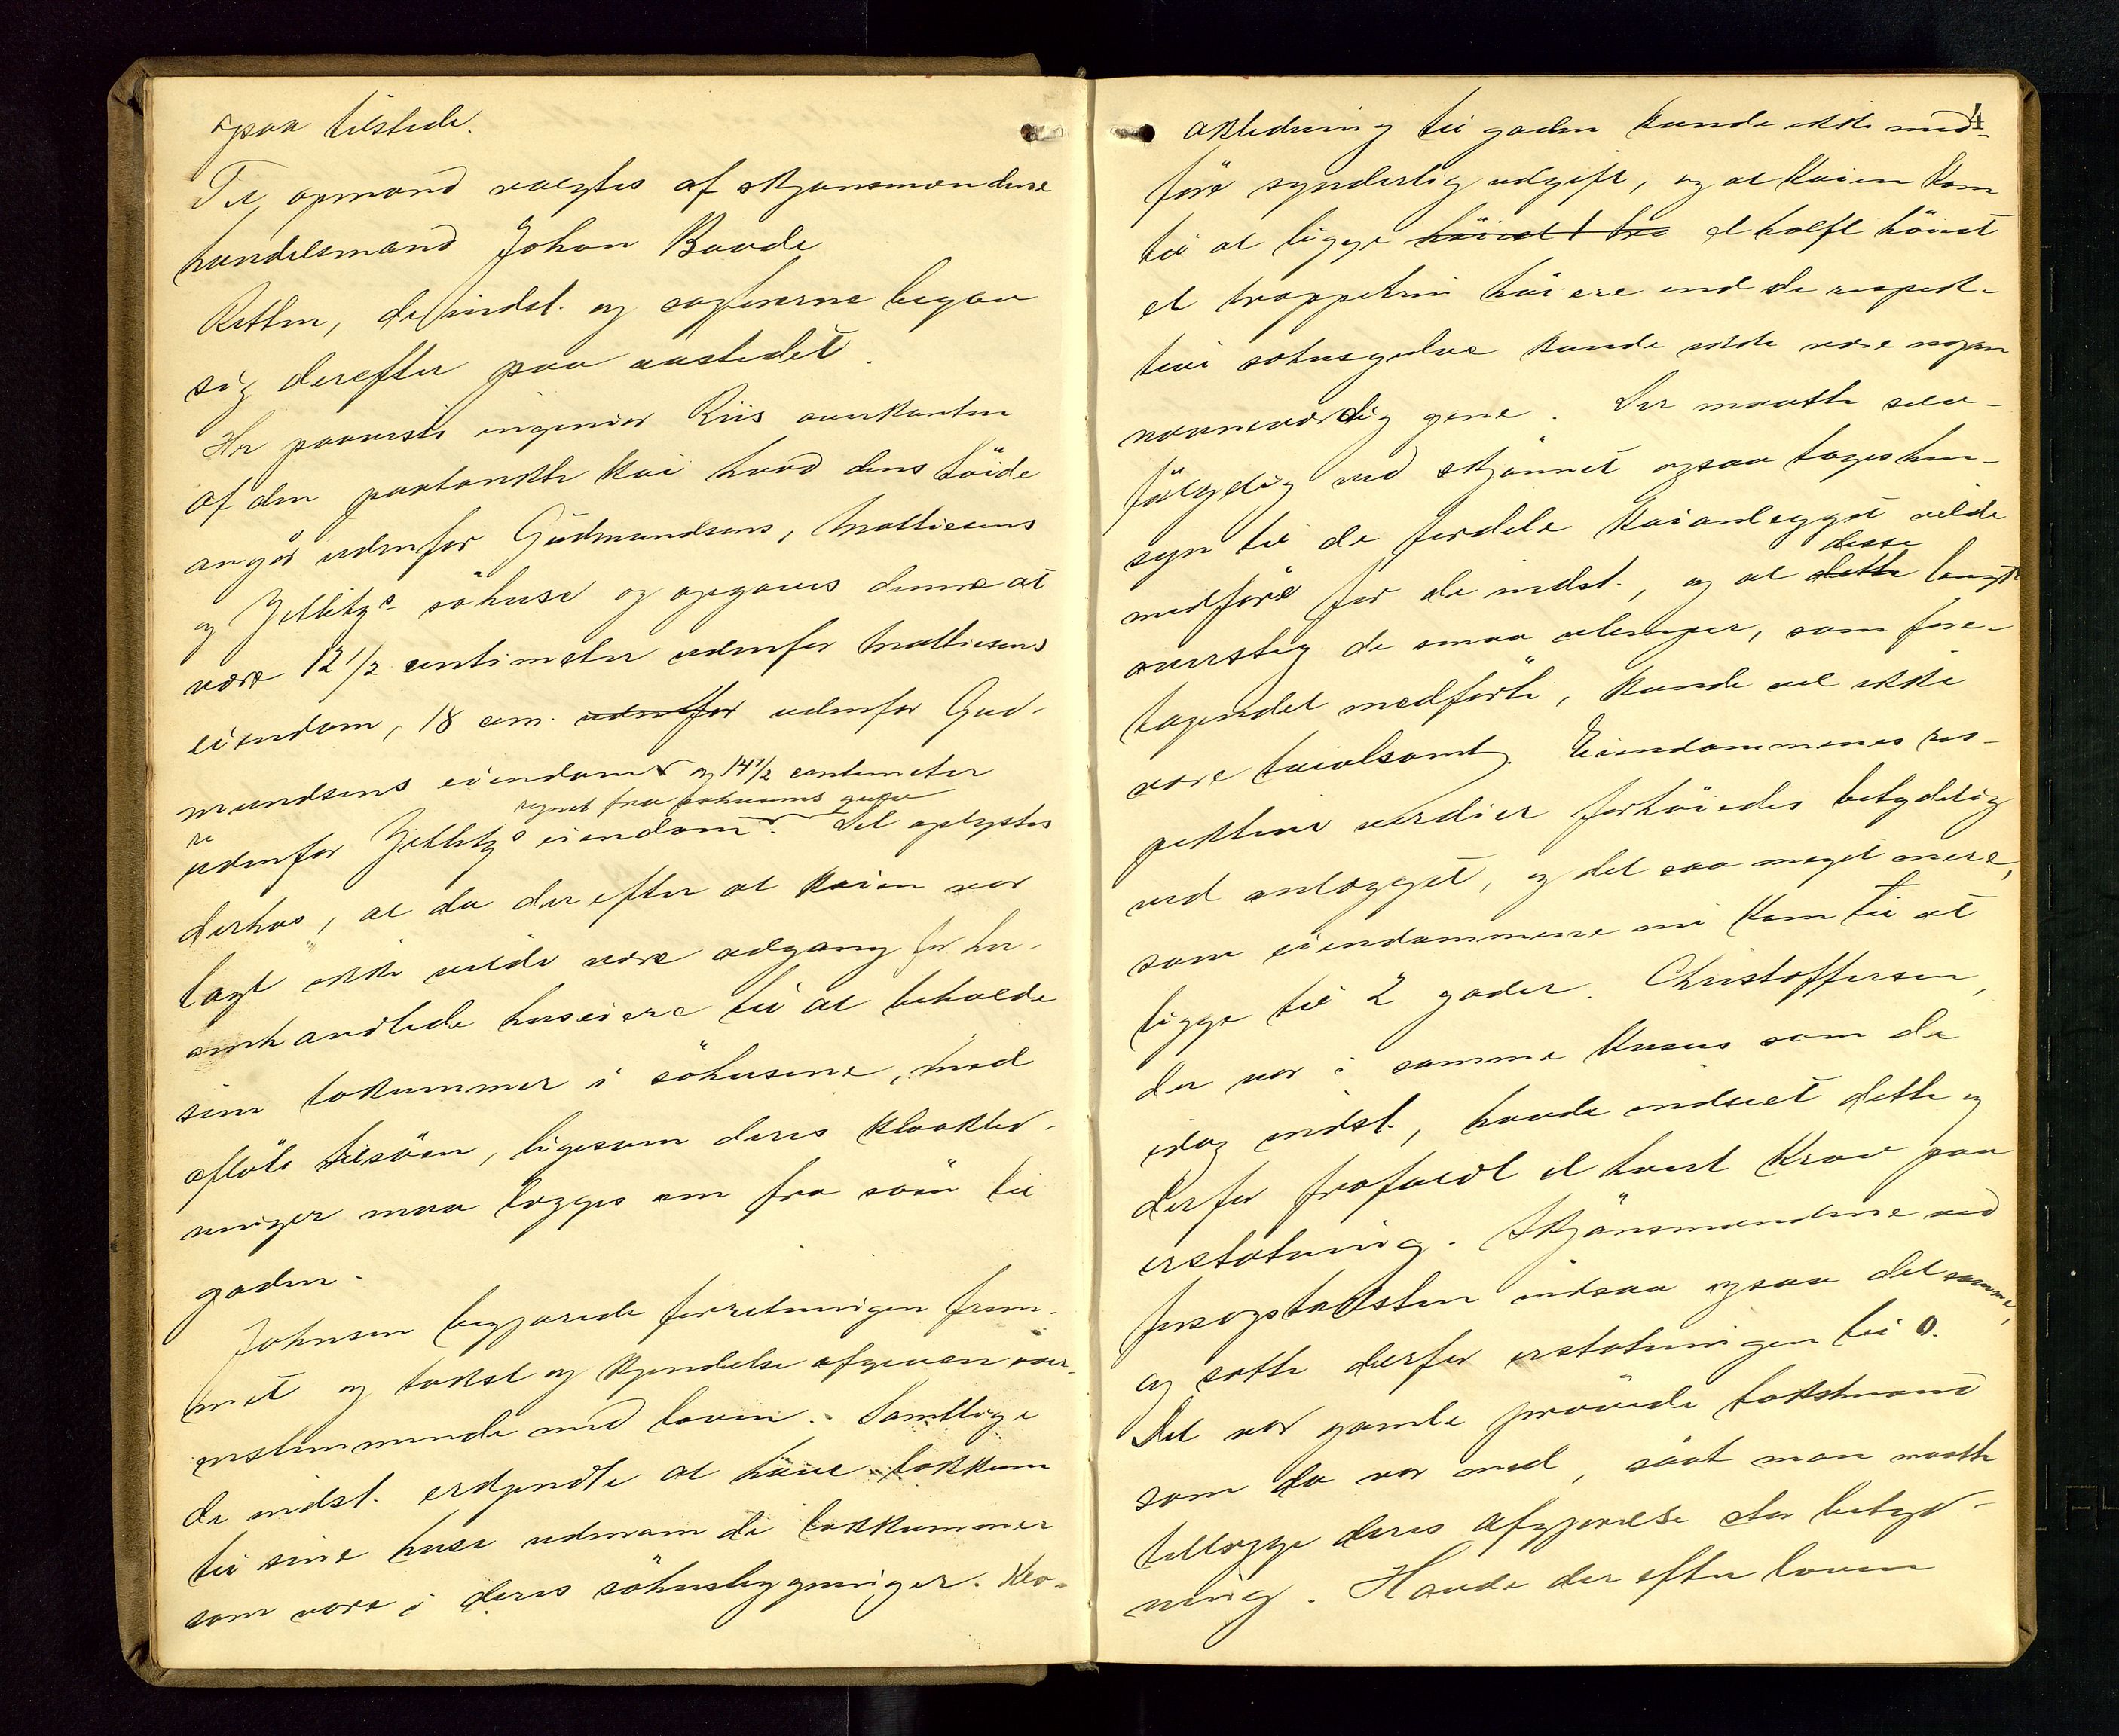 ogsaa tilstede.
Til opmand valgtes af skjønsmændene
handelsmand Johan Baade
Retten, de indst. og sagførerne begav
sig derefter paa aastedet.
Her paaviste ingeniør Riis overkanten
af den paatænkte kai hvad dens höide
angår udenfor Gudmundsens, Mathiesens
og Zetlitz's söhuse og opgaves denne at
være 12 1/2 centimeter udenfor Mathiesens
eiendom, 18 cm. udenfor udenfor Gud-
mundsens eiendom og 14 1/2 centimeter
regnet fra söhusets gulv
udenfor Zetlitz's eiendom. Det oplystes
derhos, at da der efter at kaien var
lagt ikke vilde være adgang for her-
omhandlede huseiere til at beholde
sine lokummer i söhusene, med
aflöb til söen, ligesom deres kloakled-
ninger maa lægges om fra söen til
gaden.
Johnsen begjærede forretningen frem-
met og takst og kjendelse afgiven over-
ensstemmende med loven. Samtlige
de indst. erkjendte at have lokkum
til sine huse udenom de lokkummer
som være i deres söhusbygninger. Klo-
4
akledning til gaden kunde ikke med-
före synderlig udgift, og at kaien kom
til at ligge höiest 1 tra et halft höiest
et trappetrin höiere end de respek-
tive söhusgulve kunde ikke være nogen
nævneværdig gene. Der maatte selv-
fölgelig ved skjönnet ogsaa tages hen-
syn til de fordele kaianlægget vilde
disse
medföre for de indst., og at dette langt
oversteg de smaa ulemper, som fore-
tagendet medförte, kunde vel ikke
være tvivlsomt. Eiendommenes res-
pektive verdier forhöiedes betydelig
ved anlægget, og det saa meget mere,
som eiendommene nu kom til at
ligge til 2 gader. Christoffersen,
der var i samme kasus som de
idag indst., havde indseet dette og
derfor frafaldt et hvert krav paa
erstatning. Skjönsmændene ved
forsögstaksten indsaa ogsaa det samme,
og satte derfor erstatningen til 0.
Det var gamle prövede takstmænd
som da var med, saat man maatte
tillægge deres afgjørelse stor betyd-
ning. Havde der efter loven